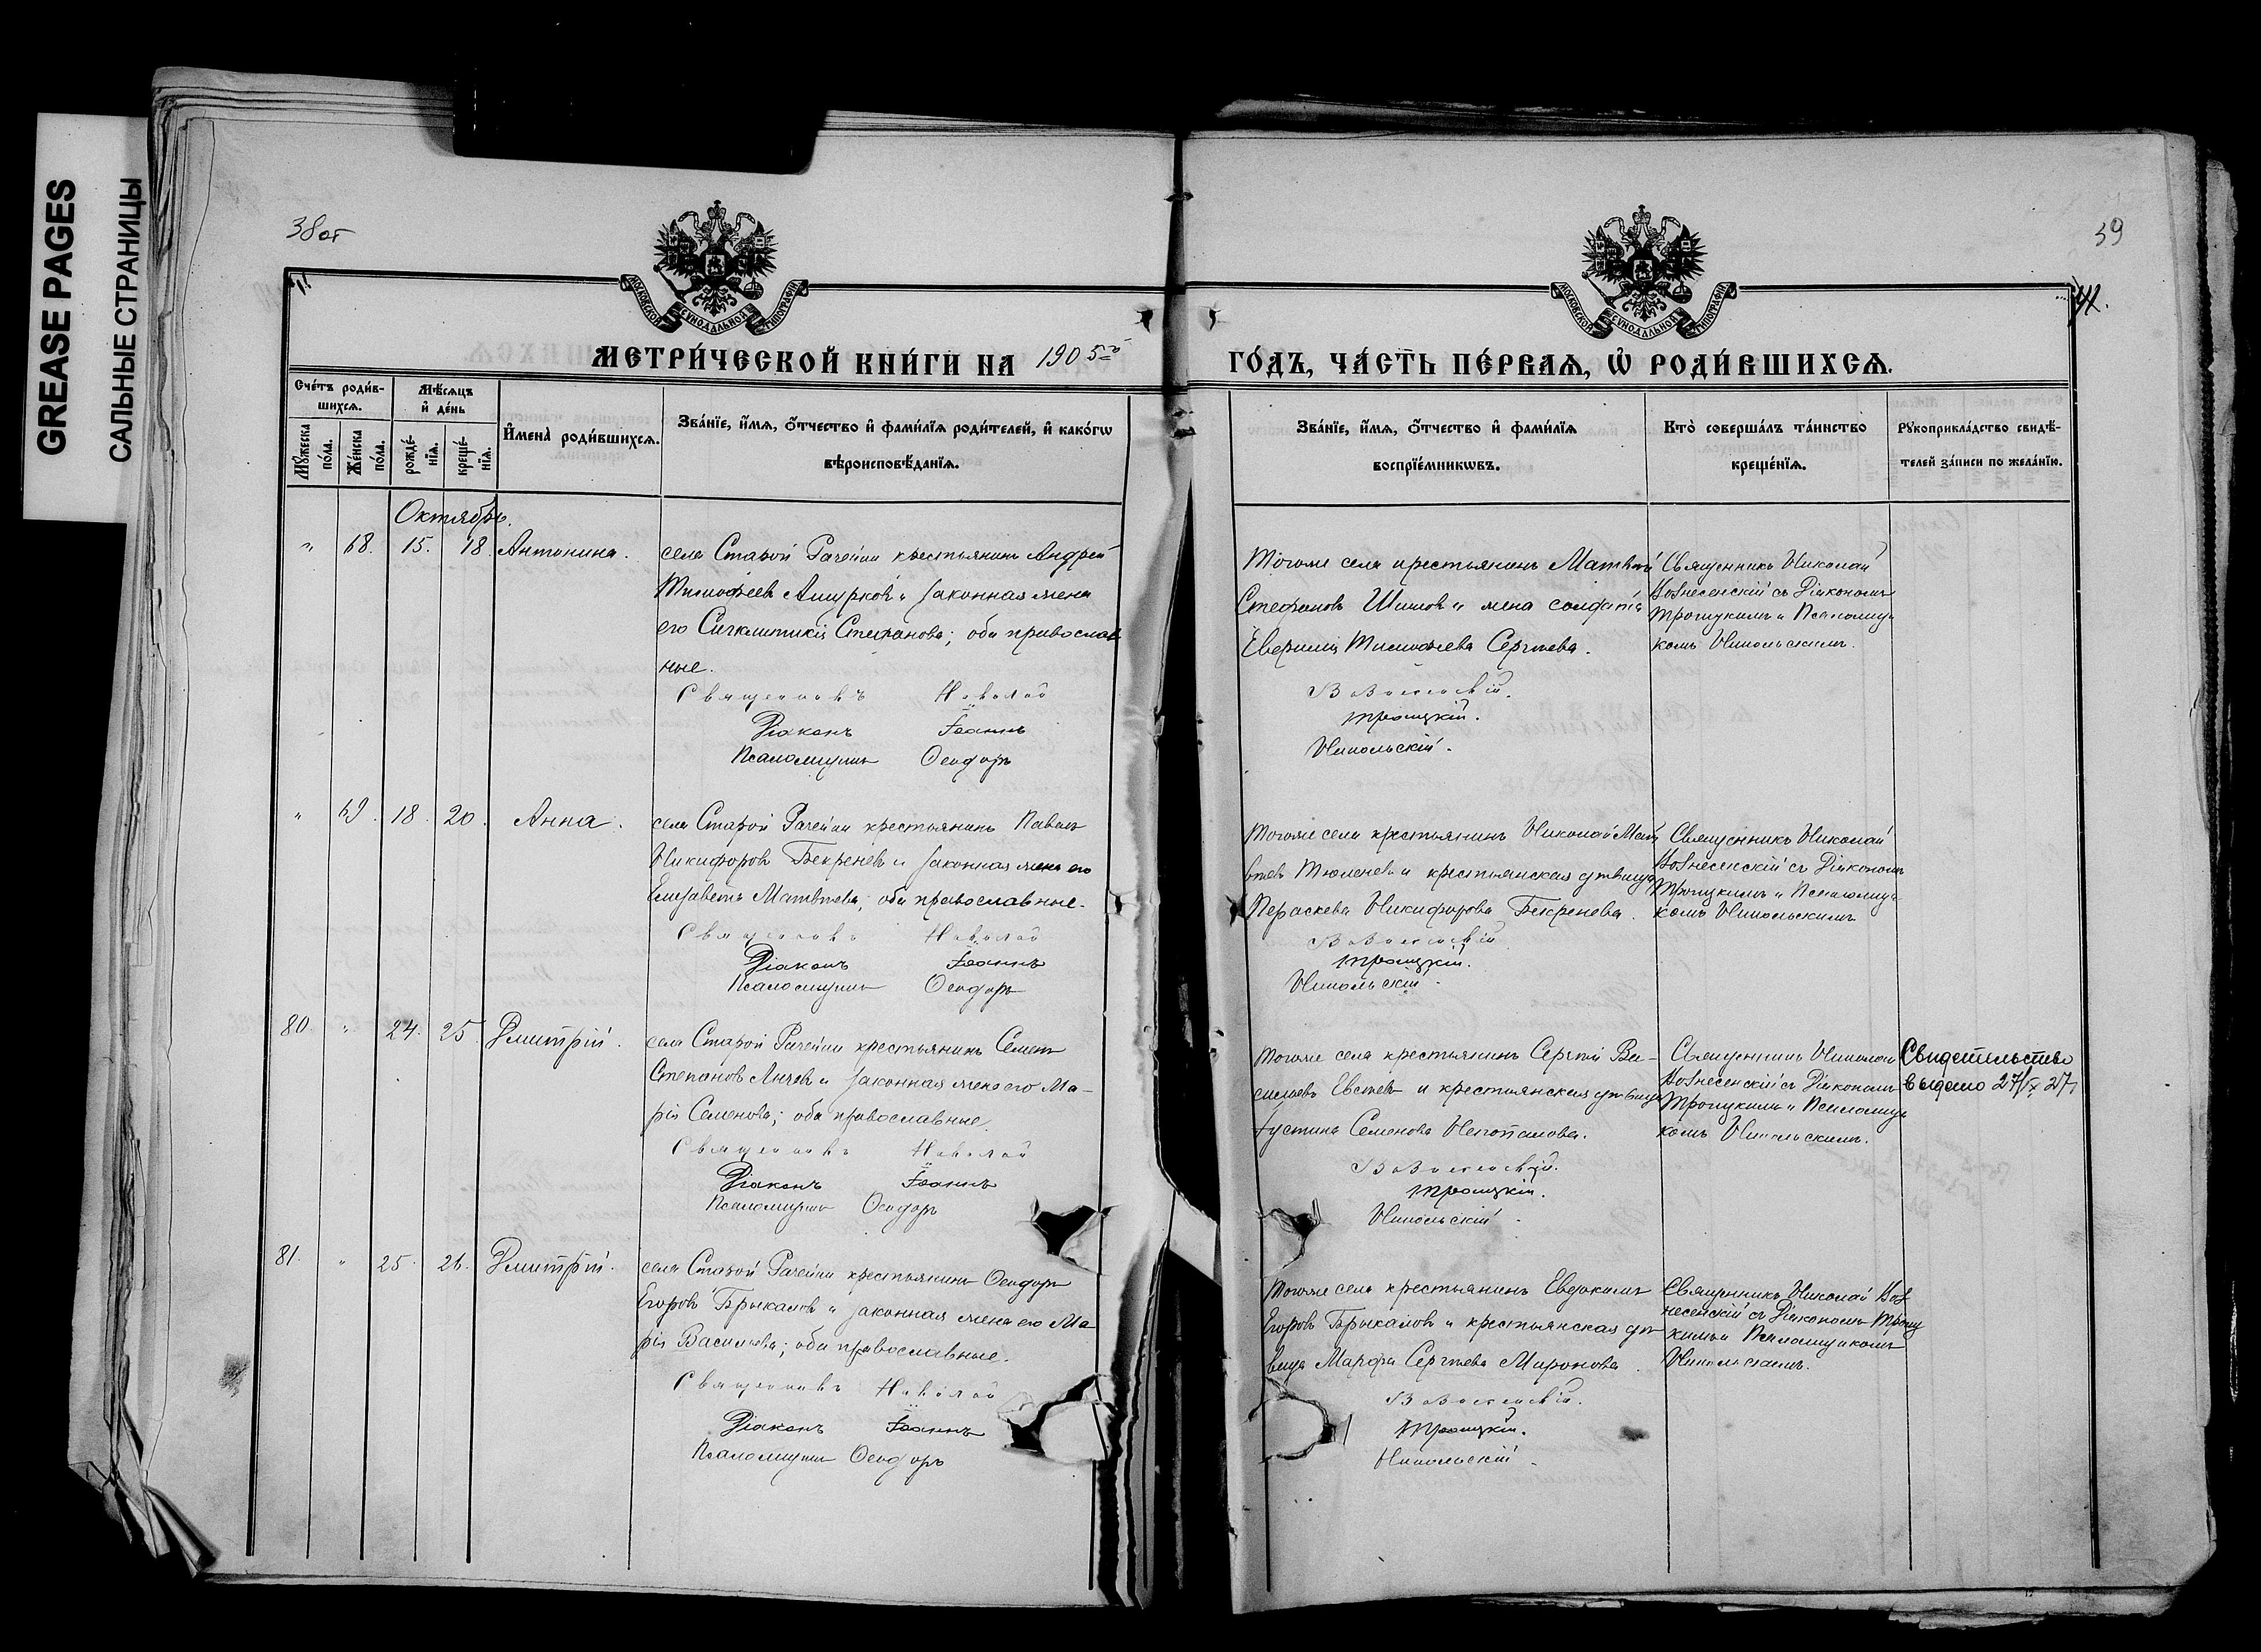 GREASE PAGES
САЛЬНЫЕ СТРАНИЦЫ
38об
39
МОСКОВСКОЙ СѴНОДАЛЬНОЙ ТИПОГРАФІИ
МОСКОВСКОЙ СѴНОДАЛЬНОЙ ТИПОГРАФІИ
МЕТРИ́ЧЕСКОЙ КНИ́ГИ НА 1905
ГО́ДЪ, ЧА́СТЬ ПЕ́РВАѦ, Ѽ РОДИ́ВШИХСѦ.
Сче́тъ роди́в-
шихсѧ.
Мѣ́сѧцъ
и҆ де́нь
Мꙋ́жеска
по́ла.
Же́нска
по́ла.
рожде́-
нїѧ.
креще́-
нїѧ.
И҆мена̀ роди́вшихсѧ.
Зва́нїе, и҆́мѧ, ѻ҆́тчество и҆ фами́лїѧ роди́телей, и҆ како́гѡ
вѣроисповѣ́данїѧ.
Зва́нїе, и҆́мѧ, ѻ҆́тчество и҆ фами́лїѧ
воспрїе́мникѡвъ.
Кто̀ соверша́лъ та́инство
креще́нїѧ.
Рꙋкоприкла́дство свидѣ́-
телей за́писи по жела́нїю.
Октябрь.
" 68. 15. 18. Антонина.
села Старой Рачейки крестьянинъ Андрей
Тимофеевъ и законная жена
его Степанова; оба православ
ные.
Священникъ Николай
Діаконъ Іоаннъ
Псаломщикъ Ѳеодоръ
Тогоже села крестьянинъ Матвѣй
Стефановъ Шиловъ и жена солдата
Тимофеева Сергѣева.
Вознесенскій.
Троицкій.
Никольскій.
Священникъ Николай
Вознесенскій съ Діакономъ
Троицкимъ и Псаломщи
комъ Никольскимъ.
" 69. 18. 20. Анна.
села Старой Рачейки крестьянинъ Павелъ
Никифоровъ Бекреневъ и законная жена его
Елизавета Матвѣева; оба православные.
Священникъ Николай
Діаконъ Іоаннъ
Псаломщикъ Ѳеодоръ
Тогоже села крестьянинъ Николай Мат
вѣевъ Тюленевъ и крестьянская дѣвица
Параскева Никифорова Бекренева.
Вознесенскій
Троицкій.
Никольскій.
Священникъ Николай
Вознесенскій съ Діакономъ
Троицкимъ и Псаломщи
комъ Никольскимъ
80. " 24. 25 Димитрій.
села Старой Рачейки крестьянинъ Семенъ
Степановъ и законная жена его Ма-
рія Семенова; оба православные.
Священникъ Николай
Діаконъ Іоаннъ
Псаломщикъ Ѳеодоръ
Тогоже села крестьянинъ Сергѣй Ва-
сильевъ Евсѣевъ и крестьянская дѣвица
Іустина Семенова
Вознесенскій.
Троицкій.
Никольскій.
Священникъ Николай
Вознесенскій съ Діакономъ
Троицкимъ и Псаломщи
комъ Никольскимъ.
Свидетельство
выдано 27/IX 27
81. " 25. 26. Димитрій.
села Старой Рачейки крестьянинъ Ѳеодоръ
Егоровъ Брыкаловъ и законная жена его Ма
рія Васильева; оба православные.
Священникъ Николай
Діаконъ Іоаннъ
Псаломщикъ Ѳеодоръ
Тогоже села крестьянинъ Евдокимъ
Егоровъ Брыкаловъ и крестьянская дѣ
вица Марфа Сергѣева Миронова.
Вознесенскій.
Троицкій.
Никольскій.
Священникъ Николай Воз
несенскій съ Діакономъ Троиц
кимъ и Псаломщикомъ
Никольскимъ.